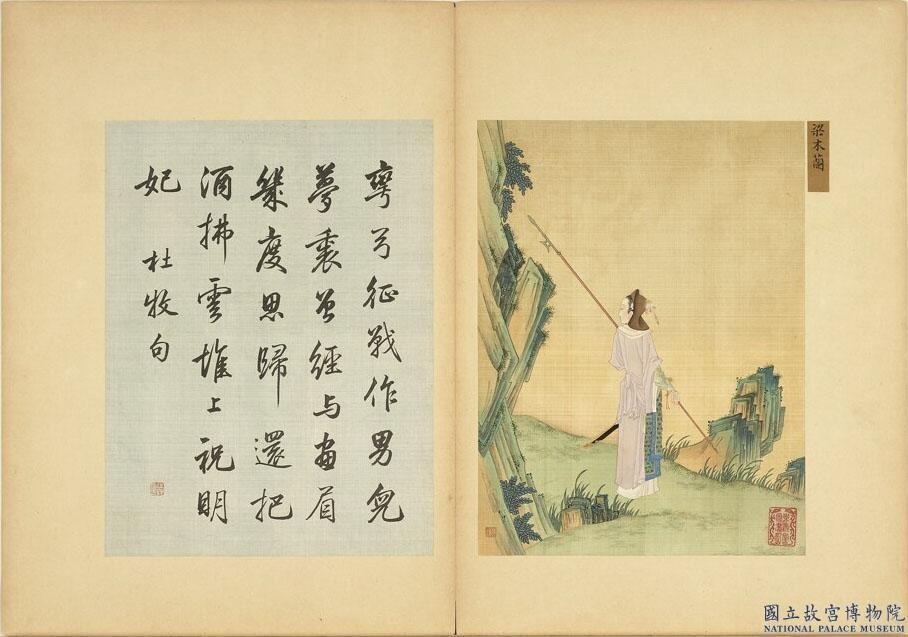 梁木蘭
彎弓征戰作男兒
夢裏曾經与畫眉
幾度思歸還把
酒拂雲堆上祝明
妃
杜牧句
國立故宮博物院
NATIONAL PALACE MUSEUM